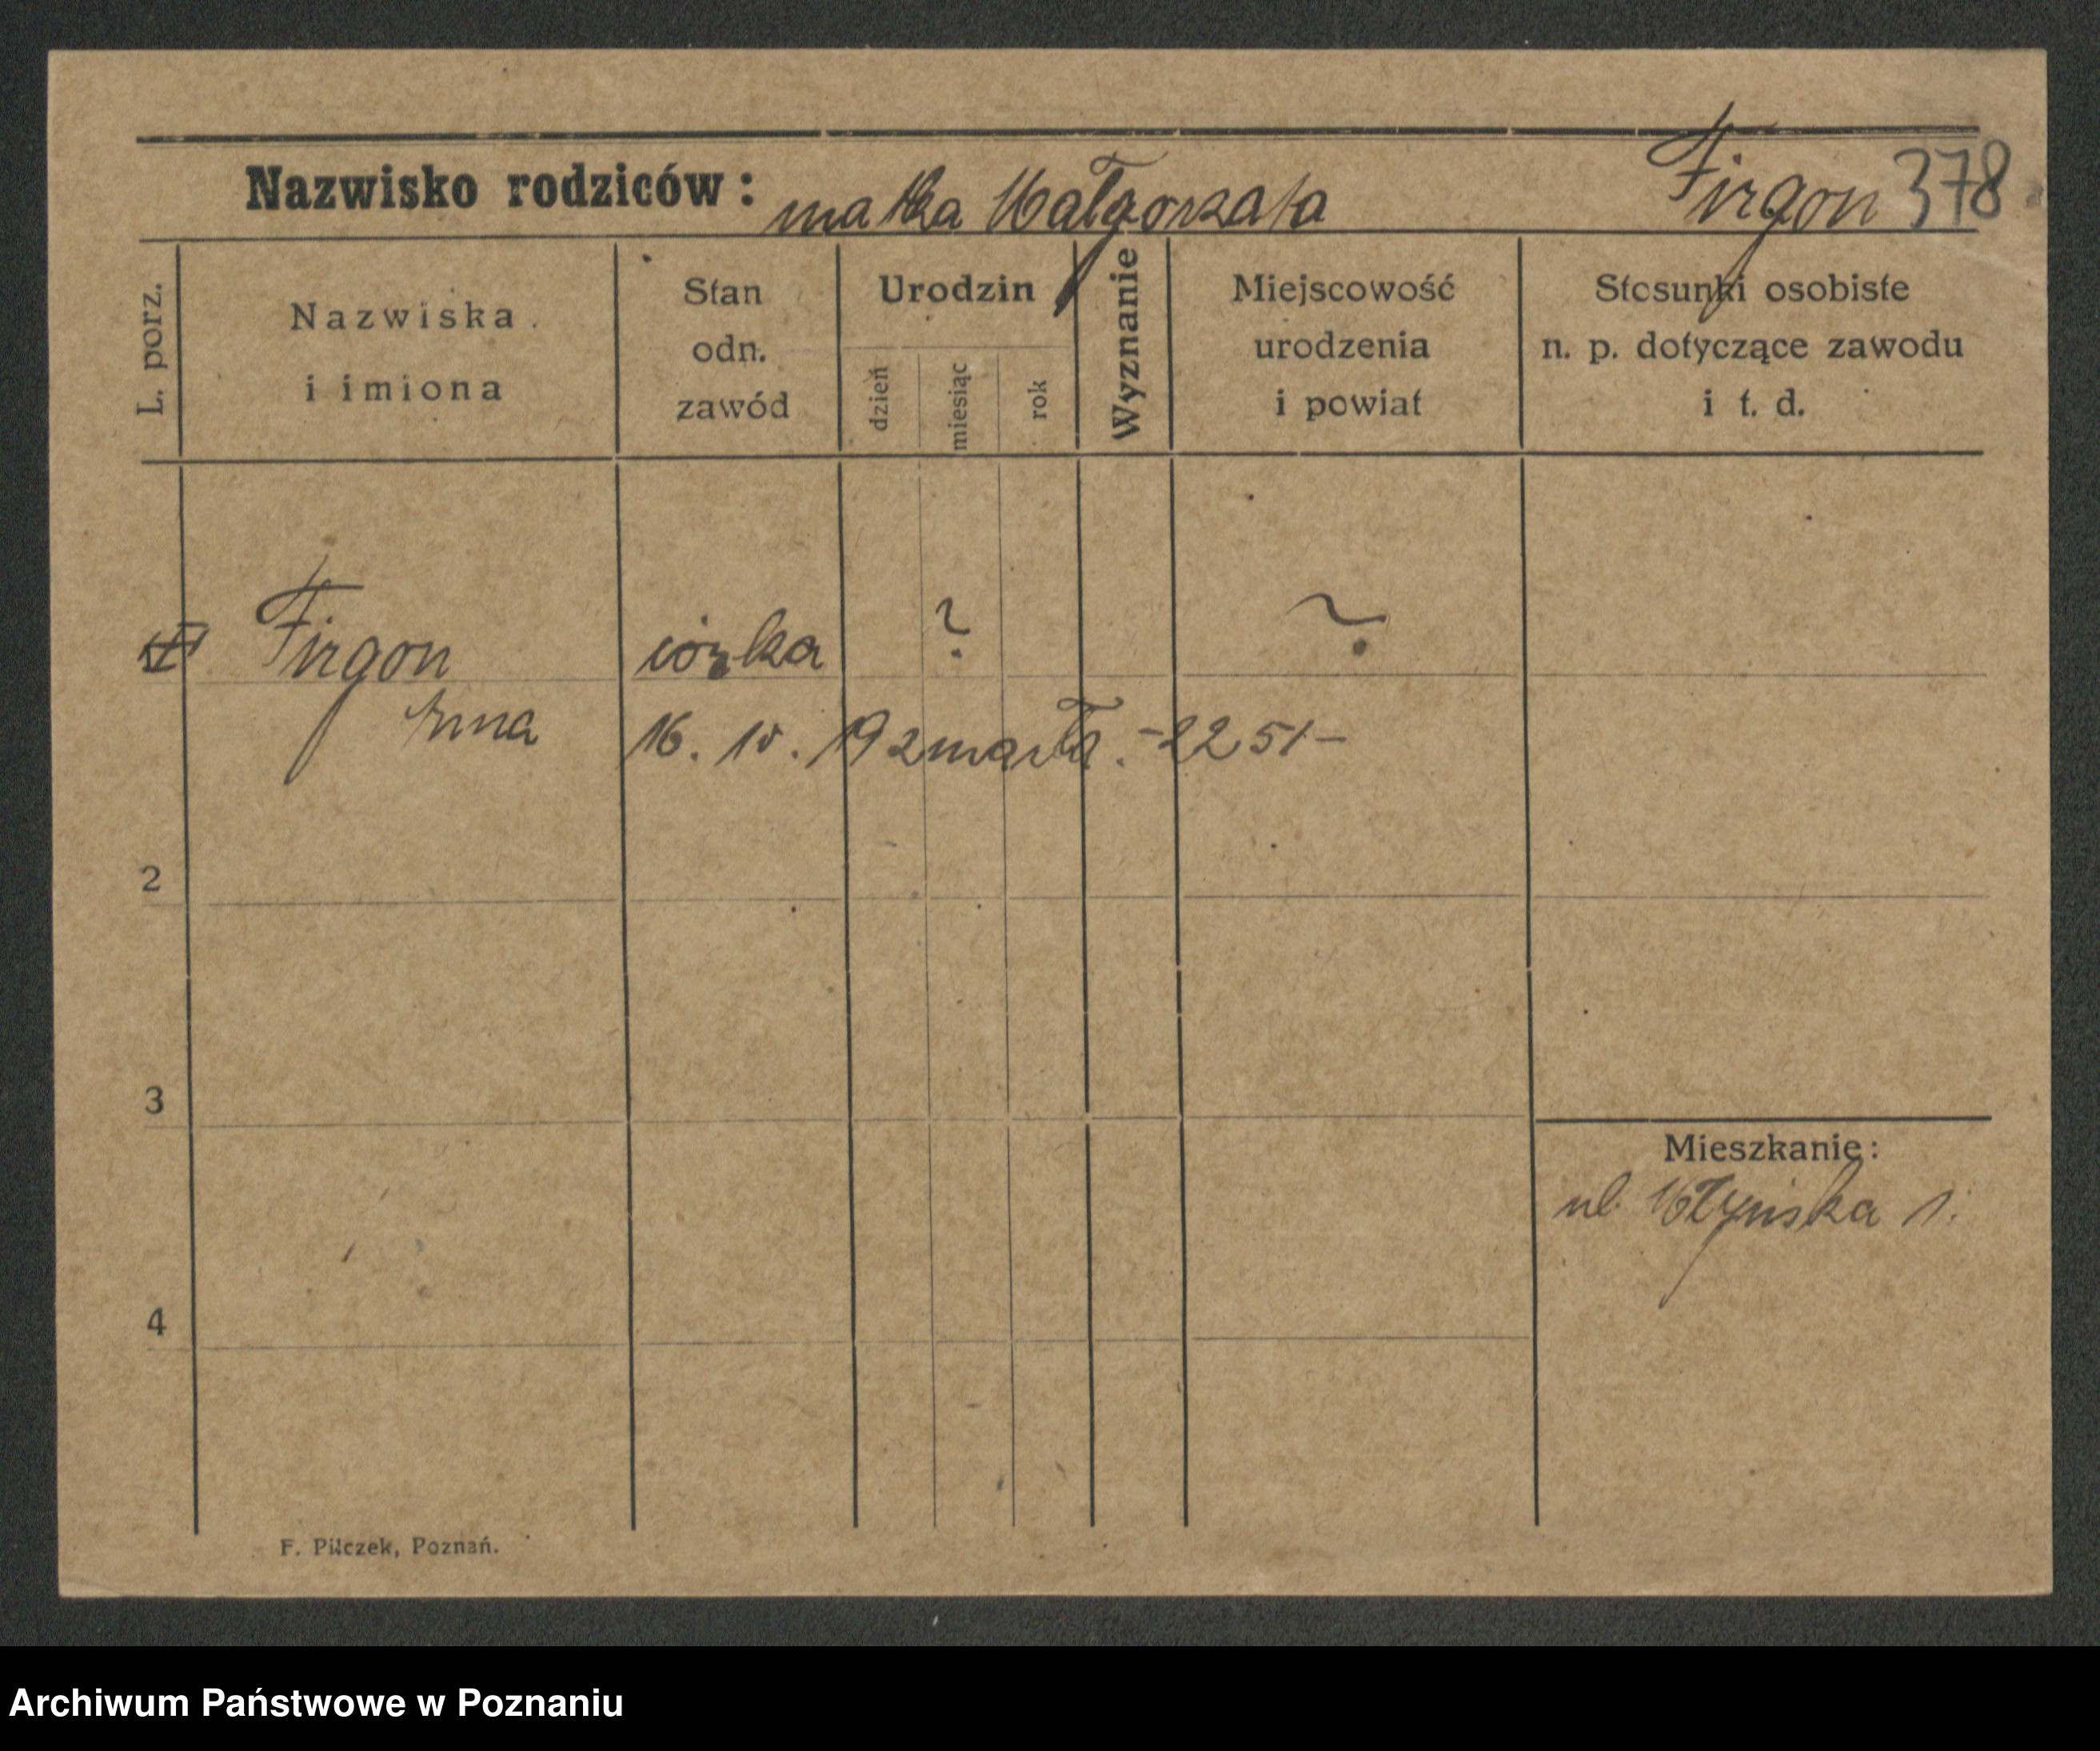 Nazwisko rodziców: matka Małgorzata Firgon 378
L. porz.
Nazwiska i imiona
Stan odn. zawód
Urodzin
dzień
miesiąc
rok
Wyznanie
Miejscowość urodzenia i powiat
Stosunki osobiste n. p. dotyczące zawodu i t. d.
Firgon córka ? ?
16. 10. 19 zmarła. -2251-
2
3
Mieszkanie:
ul. Młyńska 1.
4
F. Pilczek, Poznań.
Archiwum Państwowe w Poznaniu